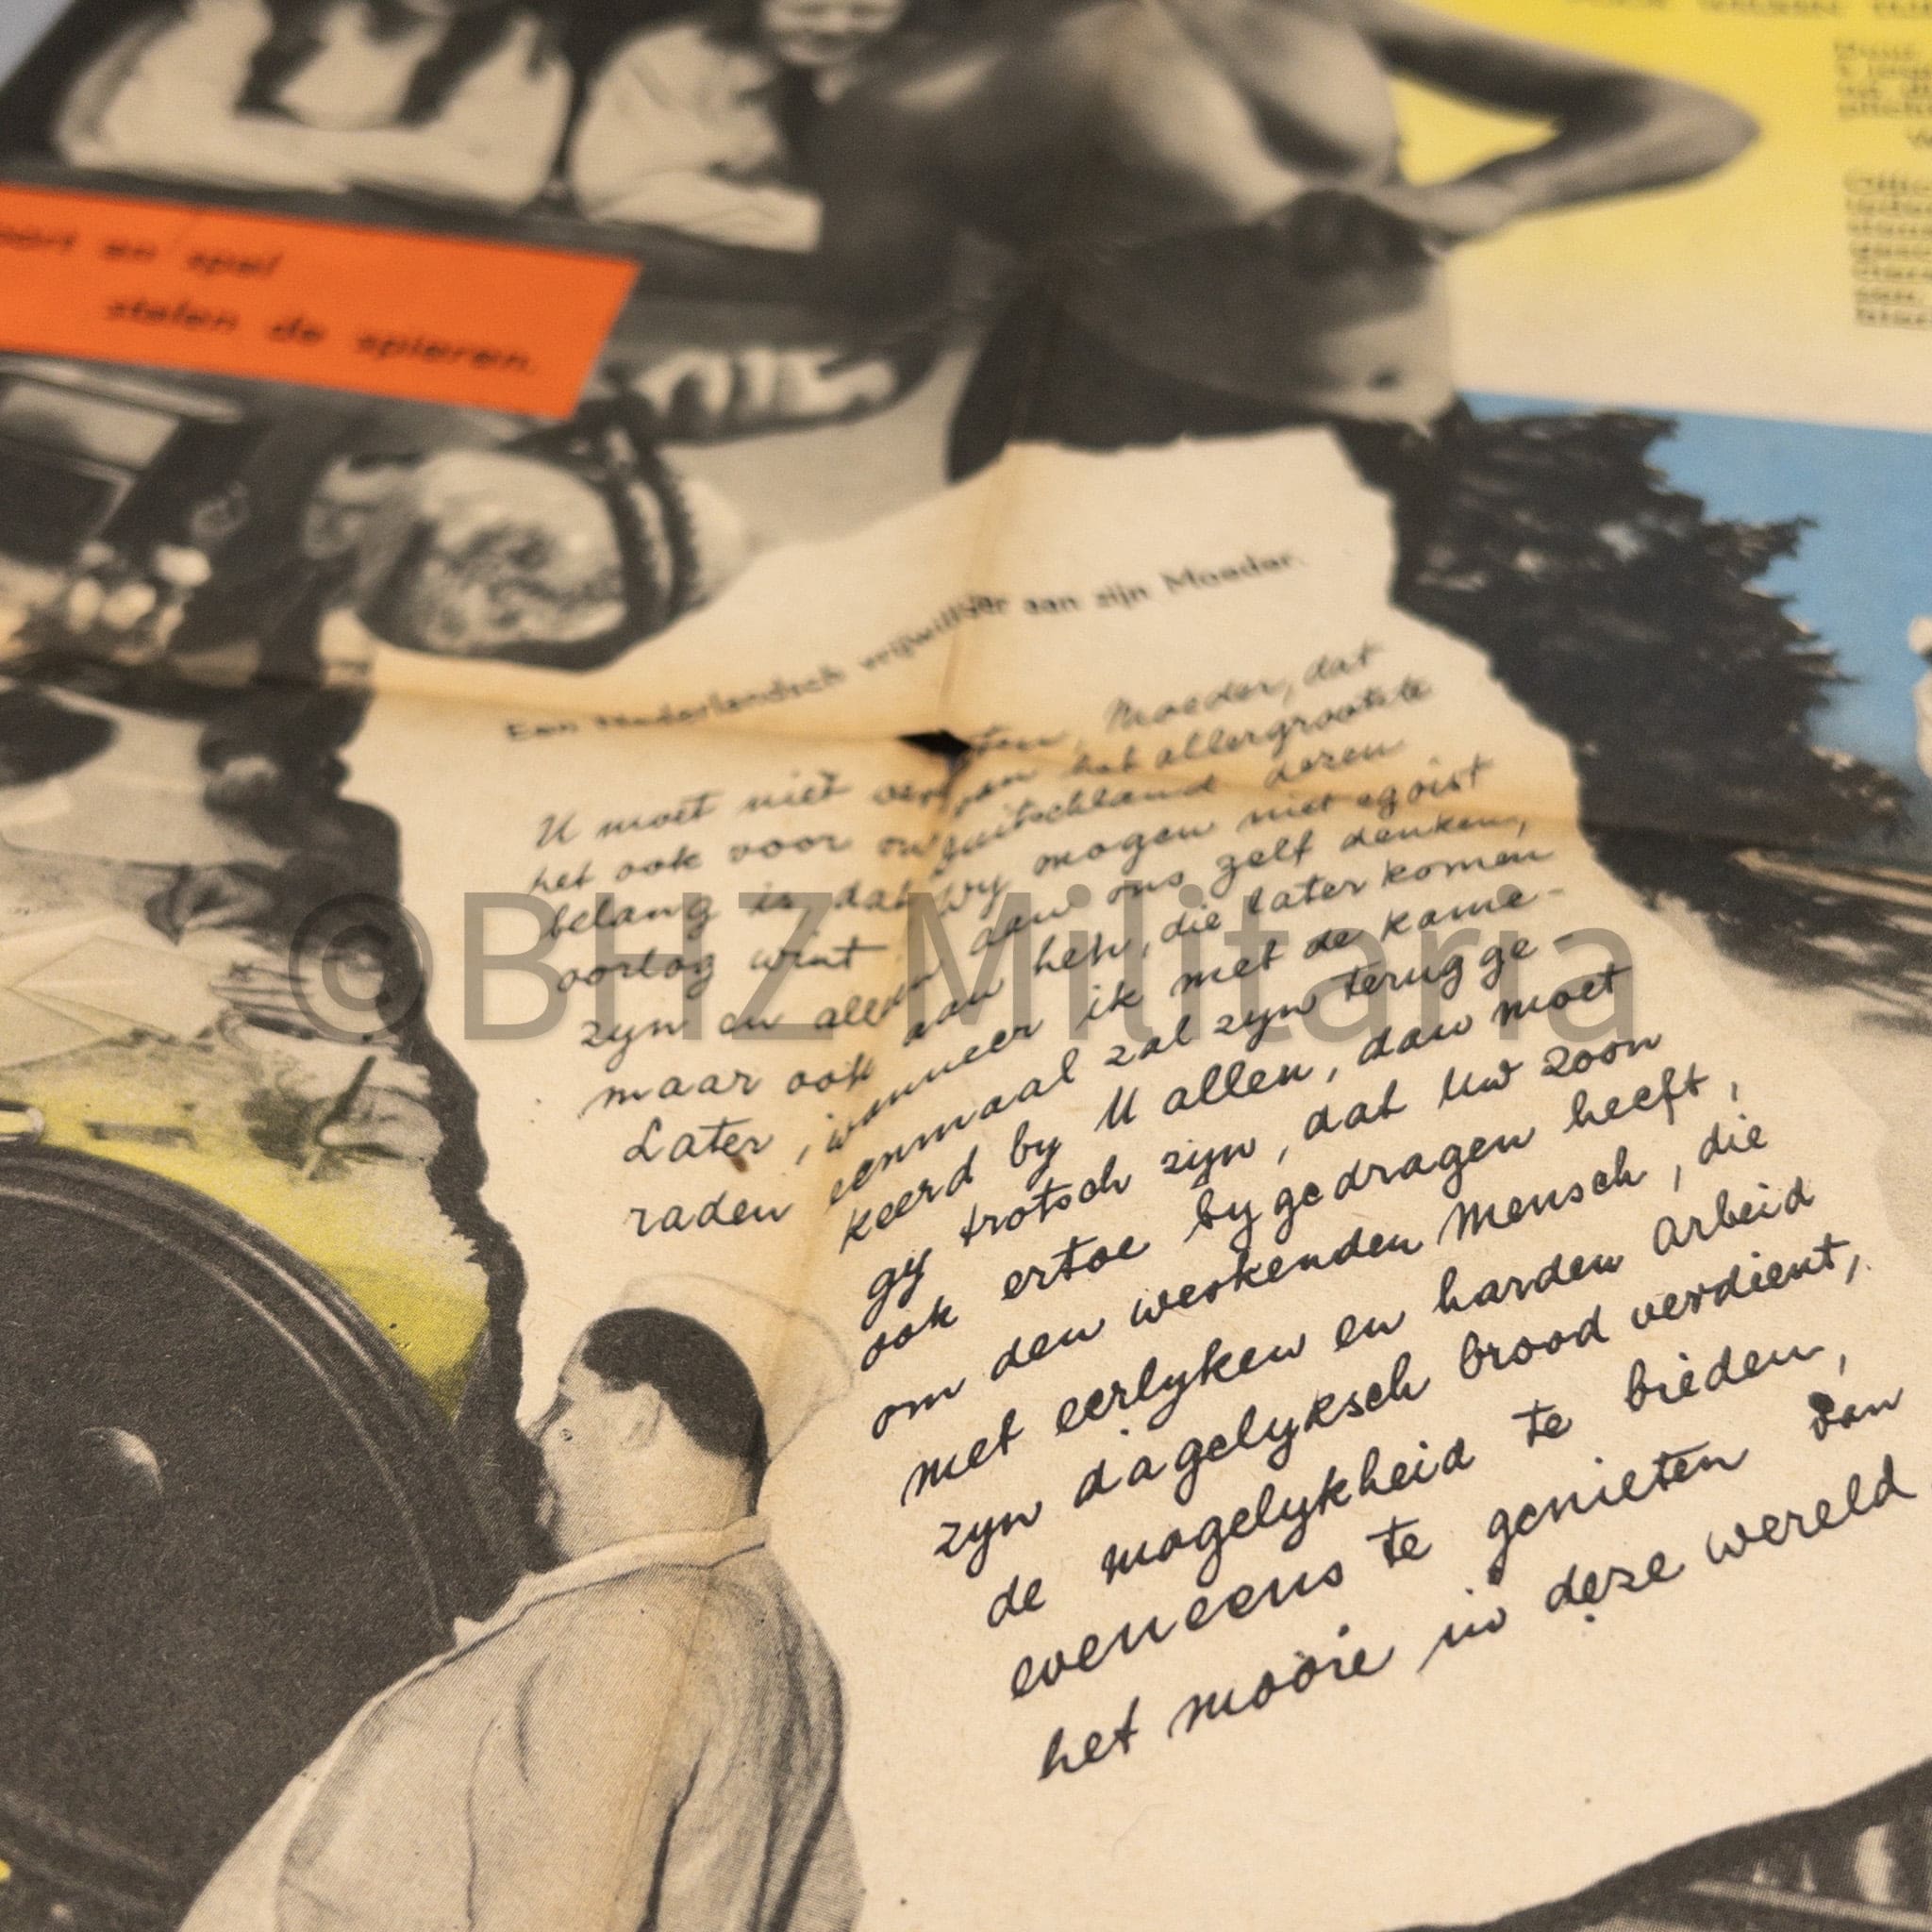 en spel
stalen de spieren.
Een Nederlandsch vrijwilliger aan zijn Moeder.
U moet niet ver ten, Moeder, dat
het ook voor van het allergrootste
belang is, dat Duitschland dezen
oorlog wint. Wy mogen niet egoist
zyn en alleen aan ons zelf denken,
maar ook aan hen, die later komen
Later, wanneer ik met de kame-
raden eenmaal zal zyn terug ge
keerd by U allen, dan moet
gy trotsch zyn, dat Uw zoon
ook ertoe bygedragen heeft,
om den werkenden Mensch, die
met eerlyken en harden arbeid
zyn dagelyksch brood verdient,
de mogelykheid te bieden,
eveneens te genieten van
het mooie in deze wereld
©BHZ Militaria